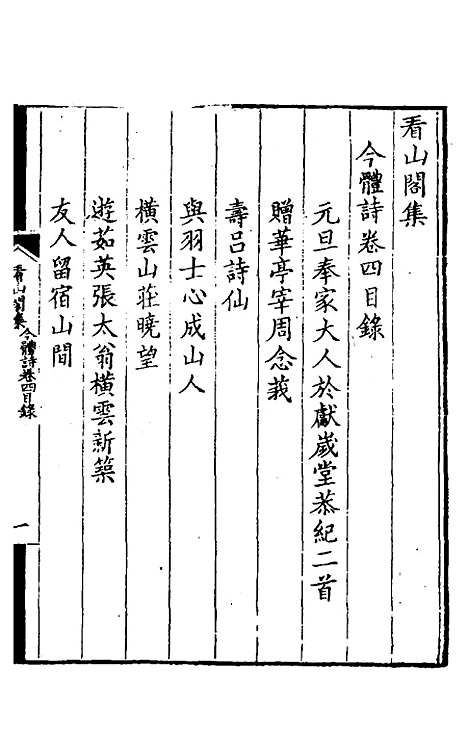 看山閣集
今體詩卷四目錄
元旦奉家大人於獻歲堂恭紀二首
贈華亭宰周念莪
壽呂詩仙
與羽士心成山人
橫雲山莊曉望
遊茹英張太翁橫雲新築
友人留宿山間
看山閣集
今體詩卷四目錄
一